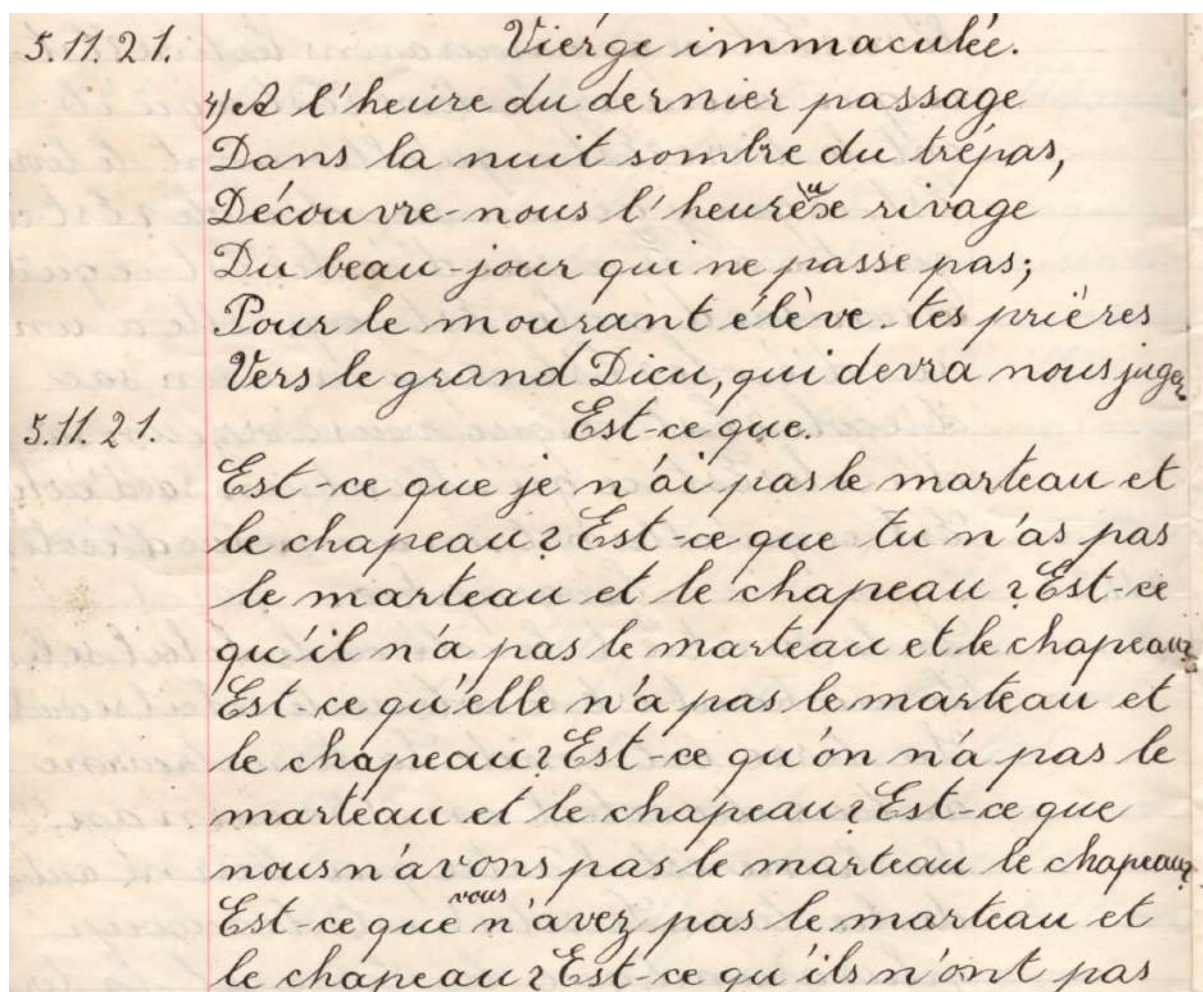 5.11.21. Vierge immaculée.
4) A l'heure du dernier passage
Dans la nuit sombre du trépas,
Découvre-nous l'heureuxe rivage
Du beau-jour qui ne passe pas;
Pour le mourant élève-tes prières
Vers le grand Dieu, qui devra nous juger.
5.11.21. Est-ce que.
Est-ce que je n'ai pas le marteau et
le chapeau? Est-ce que tu n'as pas
le marteau et le chapeau? Est-ce
qu'il n'a pas le marteau et le chapeau?
Est-ce qu'elle n'a pas le marteau et
le chapeau? Est-ce qu'on n'a pas le
marteau et le chapeau? Est-ce que
nous n'avons pas le marteau le chapeau?
Est-ce que vous n'avez pas le marteau et
le chapeau? Est-ce qu'ils n'ont pas